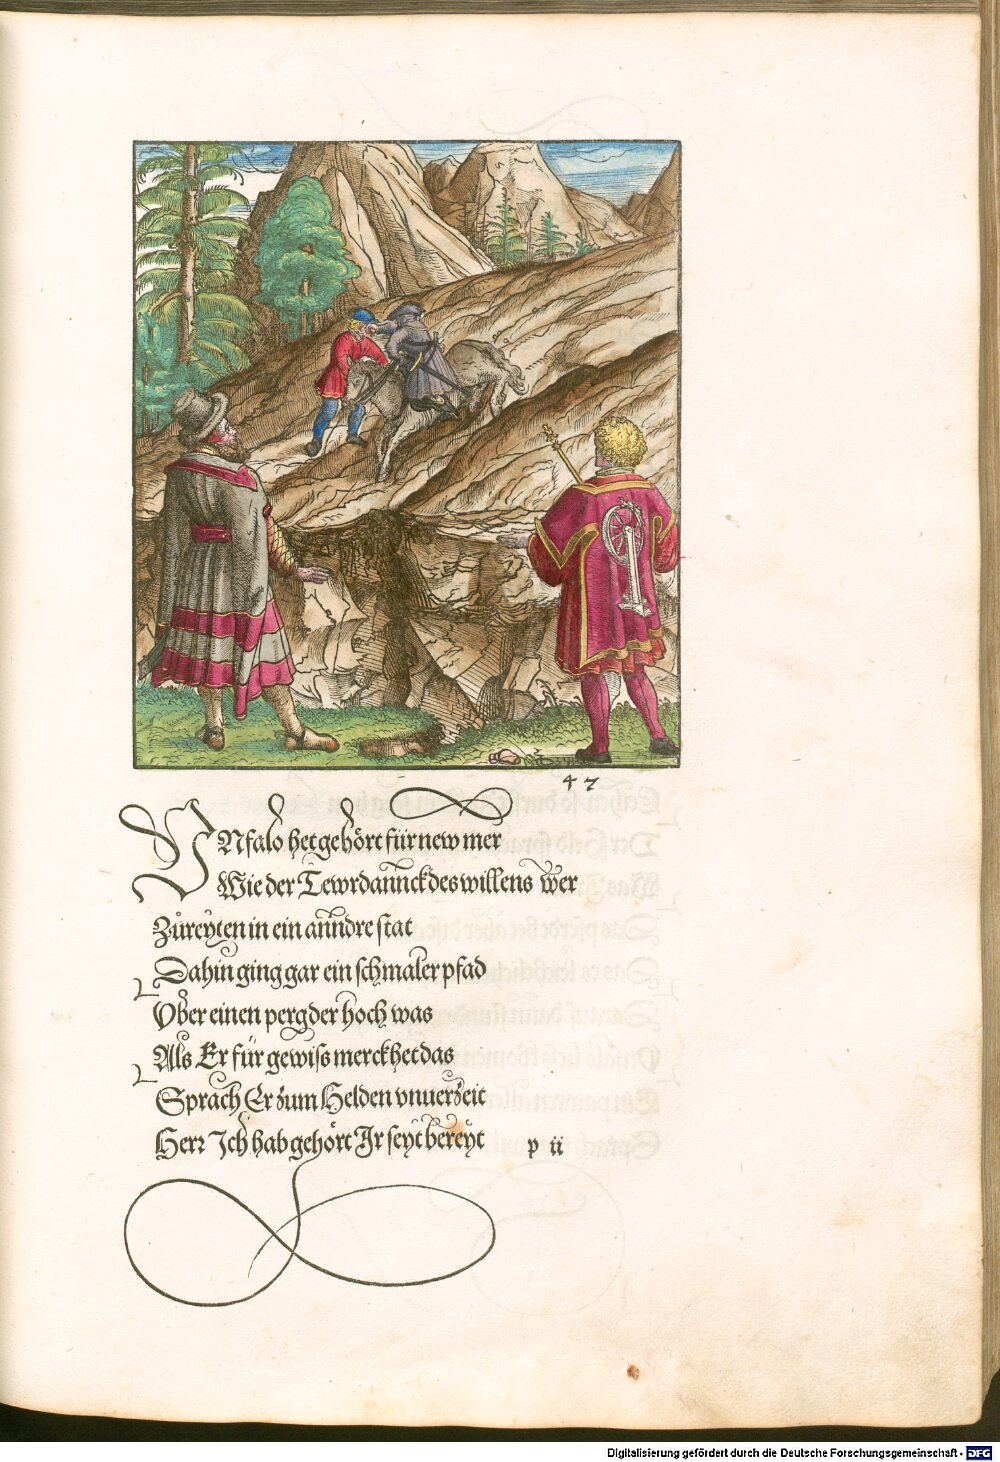 47
VNfalo het gehört für new mer
Wie der Tewrdannck des willens wer
Zůreyten in ein anndre stat
Dahin ging gar ein schmaler pfad
Vber einen perg der hoch was
Als Er für gewiss merckhet das
Sprach Er zum Helden vnuerzeit
Herr Ich hab gehört Ir seyt bereyt
p ii
Digitalisierung gefördert durch die Deutsche Forschungsgemeinschaft - DFG